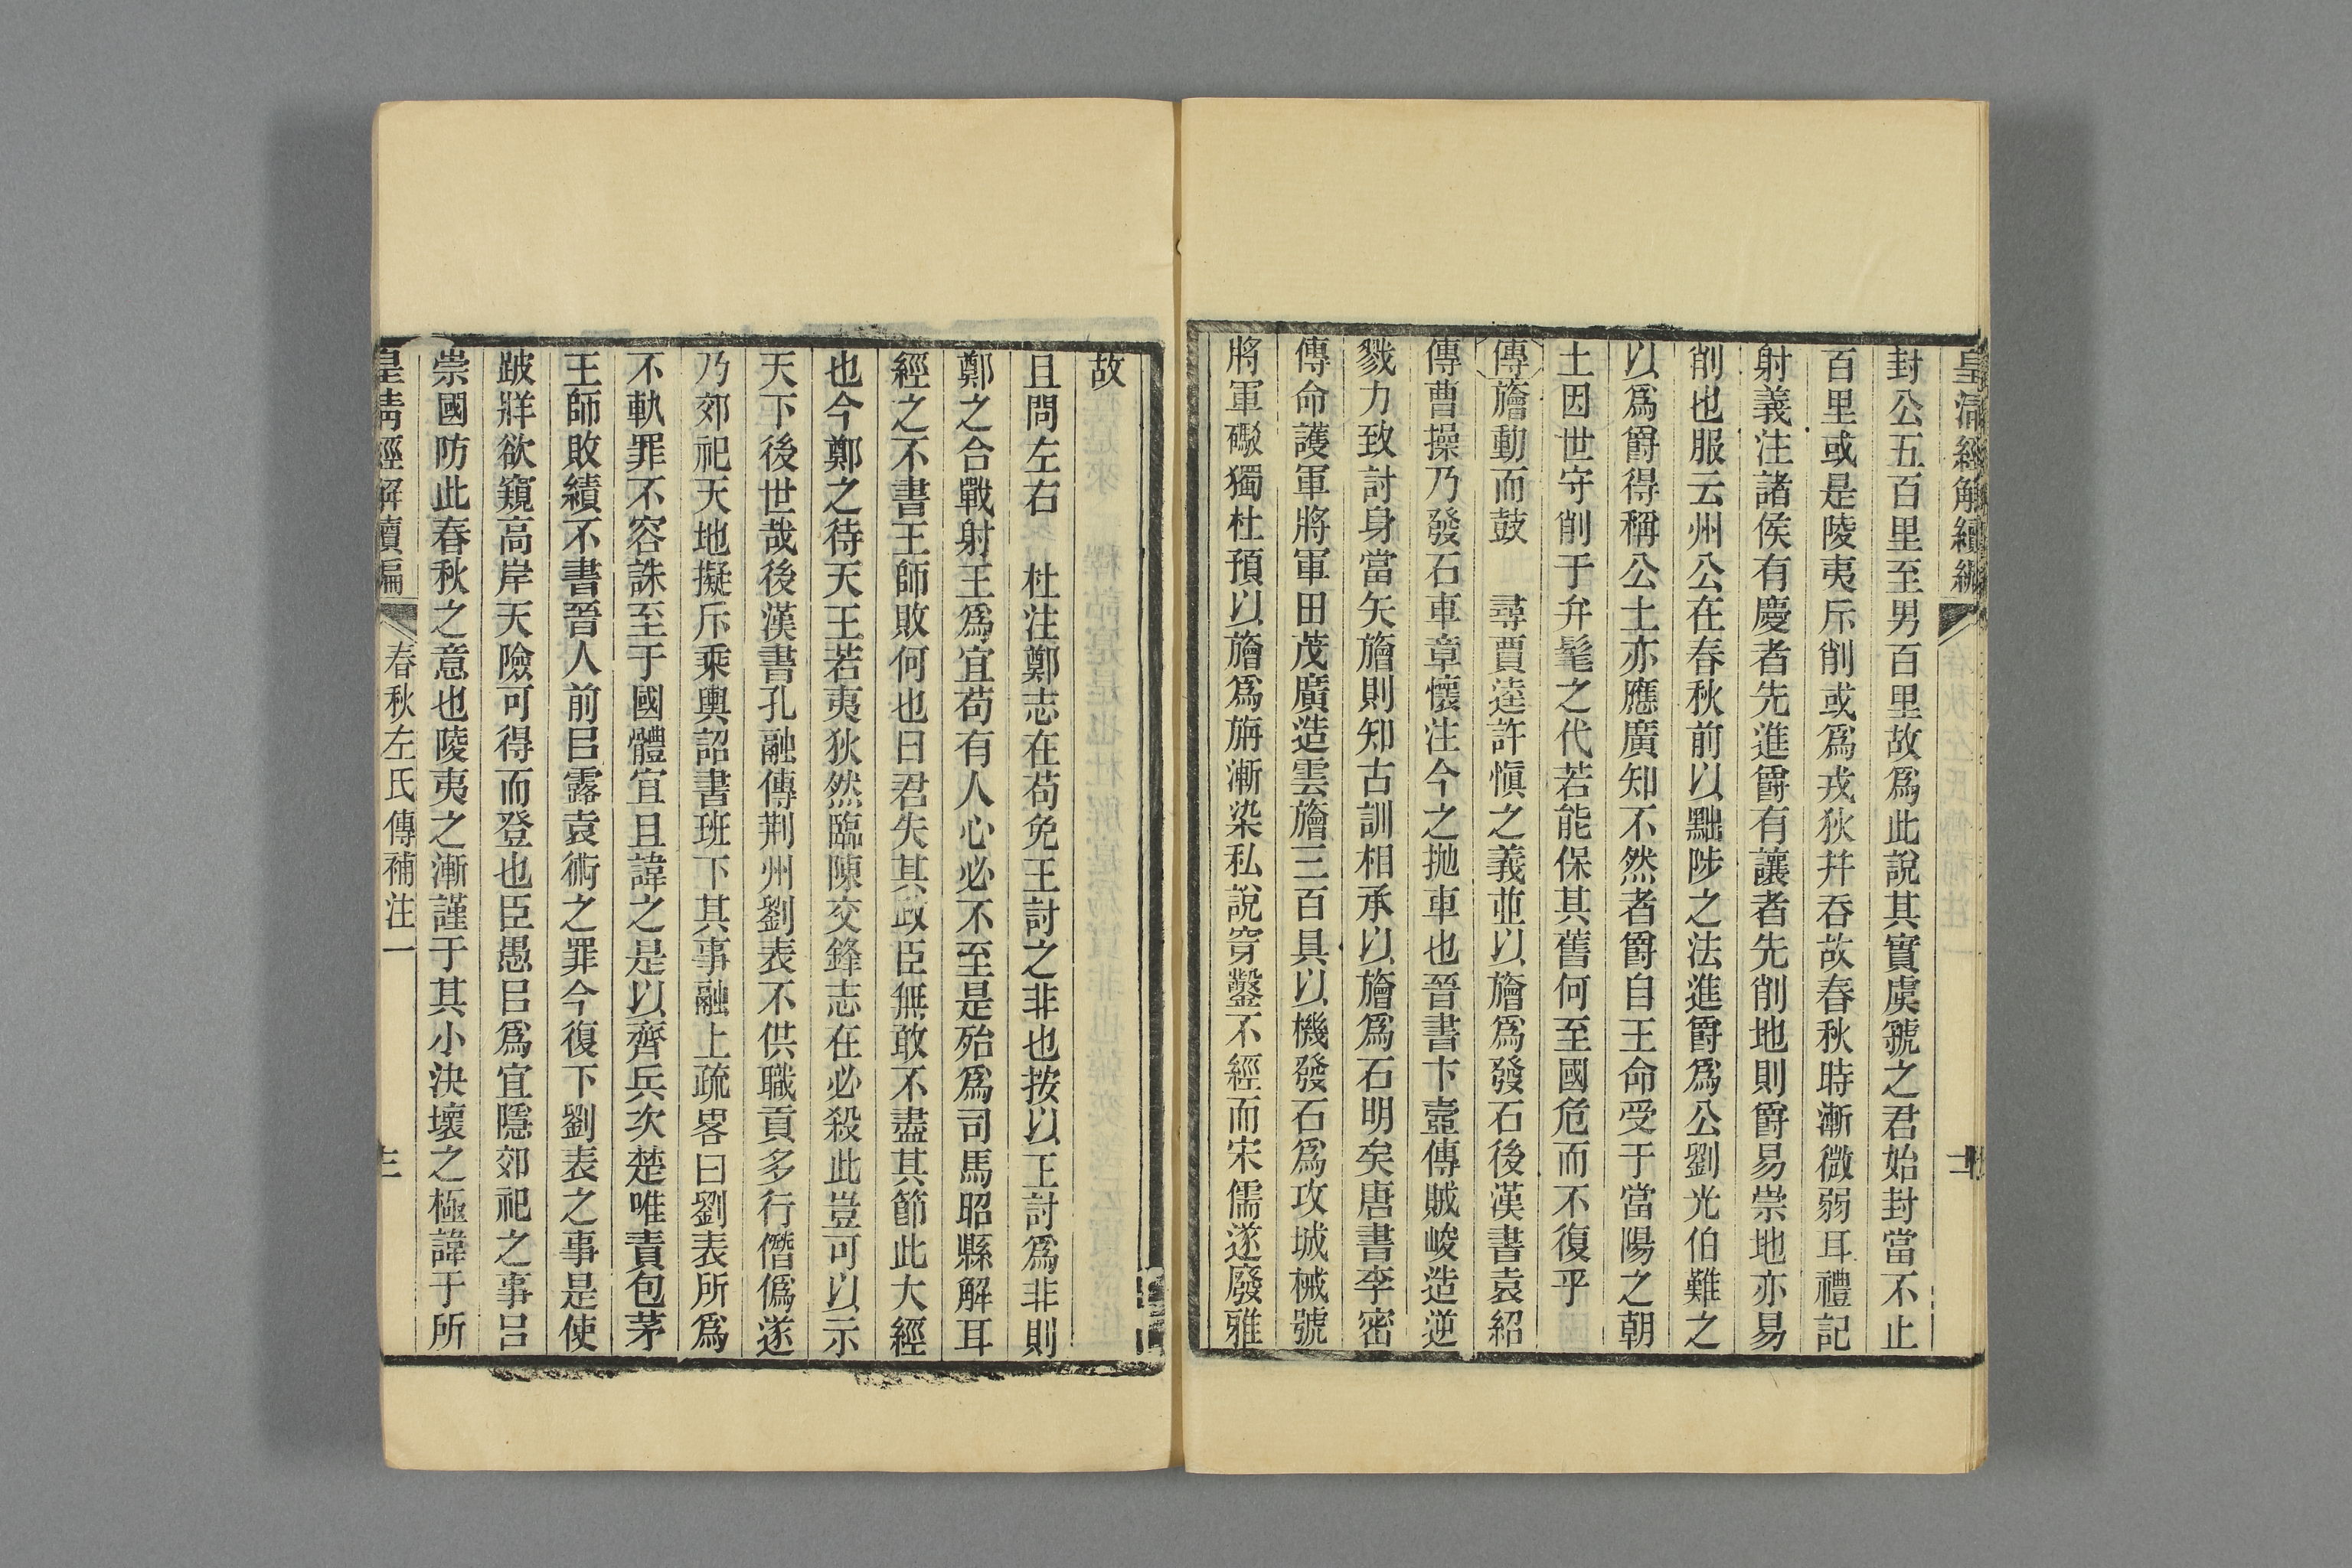 皇清經解續編
封公五百里至男百里故爲此說其實虞虢之君始封當不止
百里或是陵夷斥削或爲戎狄幷吞故春秋時漸微弱耳禮記
射義注諸侯有慶者先進爵有讓者先削地則爵易崇地亦易
削也服云州公在春秋前以黜陟之法進爵爲公劉光伯難之
以爲爵得稱公土亦應廣知不然者爵自王命受于當陽之朝
土因世守削于弁髦之代若能保其舊何至國危而不復乎
傳旝動而鼓　尋賈逵許愼之義並以旝爲發石後漢書袁紹
傳曹操乃發石車章懷注今之拋車也晉書卞壼傳賊峻造逆
戮力致討身當矢旝則知古訓相承以旝爲石明矣唐書李密
傳命護軍將軍田茂廣造雲旝三百具以機發石爲攻城械號
將軍礮獨杜預以旝爲旃漸染私說穿鑿不經而宋儒遂廢雅
故
且問左右　杜注鄭志在苟免王討之非也按以王討爲非則
鄭之合戰射王爲宜苟有人心必不至是殆爲司馬昭縣解耳
經之不書王師敗何也曰君失其政臣無敢不盡其節此大經
也今鄭之待天王若夷狄然臨陳交鋒志在必殺此豈可以示
天下後世哉後漢書孔融傳荆州劉表不供職貢多行僭僞遂
乃郊祀天地擬斥乘輿詔書班下其事融上疏畧曰劉表所爲
不軌罪不容誅至于國體宜且諱之是以齊兵次楚唯責包茅
王師敗績不書晉人前㠯露袁術之罪今復下劉表之事是使
跛牂欲窺高岸天險可得而登也臣愚㠯爲宜隱郊祀之事㠯
崇國防此春秋之意也陵夷之漸謹于其小決壞之極諱于所
皇清經解續編　春秋左氏傳補注一